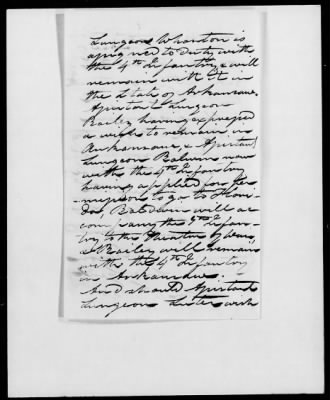 Surgeon Wharton is
assigned to duty with
the 4th Infantry & will
remain with it in
the State of Arkansas,
Assistant Surgeon
Bailey having expressed
a wish to remain in
Arkansas, & Assistant
Surgeon Baldwin now
with the 4th Infantry
having applied for per-
mission to go to Flori-
da, Baldwin will ac
company the 4th Infan-
try to the Theatre of War
& Bailey will remain
with the 4th Infantry
in Arkansas.
And should Assistant
Surgeon wish